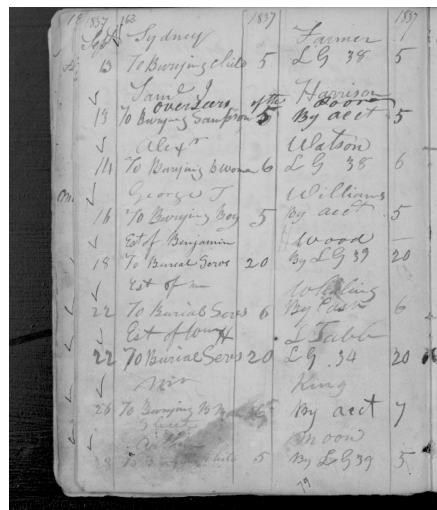 1837 163 1837 1837
Sept Sydney Farmer
13 To Burying Child 5 LG 38 5
Saml J Harrison
overseers of the poor
13 To Burying Sampson 5 By acct 5
Alexr Watson
14 To Burying B Woman 6 LG 38 6
George T Williams
16 To Burying Boy 5 By acct 5
Est of Benjamin Wood
18 To Burial Servs 20 By LG 39 20
Est of
22 To Burial Servs 6 By Cash 6
Est of Tabb
22 To Burial Servs 20 LG 34 20
Mrs King
26 To Burying By acct 7
Moon
28 5 By LG 39 5
79